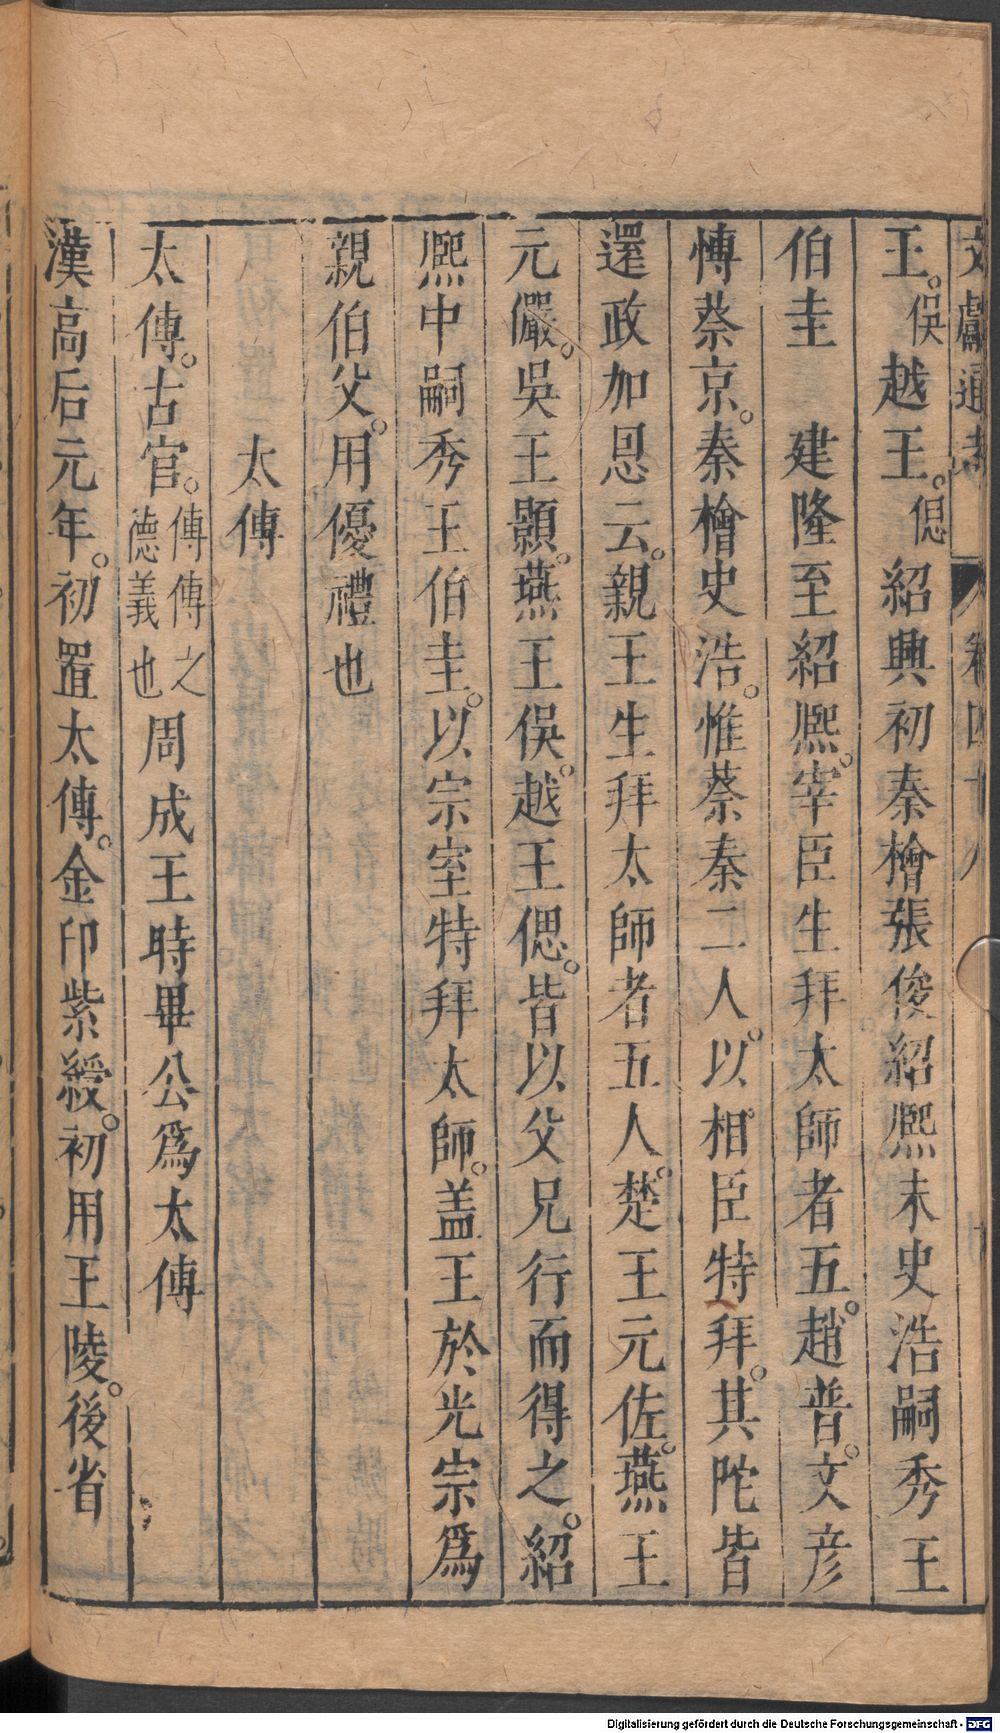 文獻通考 卷四十八 十
王。俁越王。偲紹興初秦檜張俊紹熙末史浩嗣秀王
伯圭　建隆至紹熙。宰臣生拜太師者五。趙普。文彥
愽蔡京。秦檜史浩。惟蔡秦二人。以相臣特拜。其陀皆
還政加恩云。親王生拜太師者五人。楚王元佐。燕王
元儼。吳王顥。燕王俁。越王偲。皆以父兄行而得之。紹
熙中嗣秀王伯圭。以宗室特拜太師。盖王於光宗爲
親伯父。用優禮也
太傅
太傅。古官。傅傅之德義也周成王時畢公爲太傅
漢高后元年。初置太傅。金印紫綬。初用王陵。後省
Digitalisierung gefördert durch die Deutsche Forschungsgemeinschaft - DFG